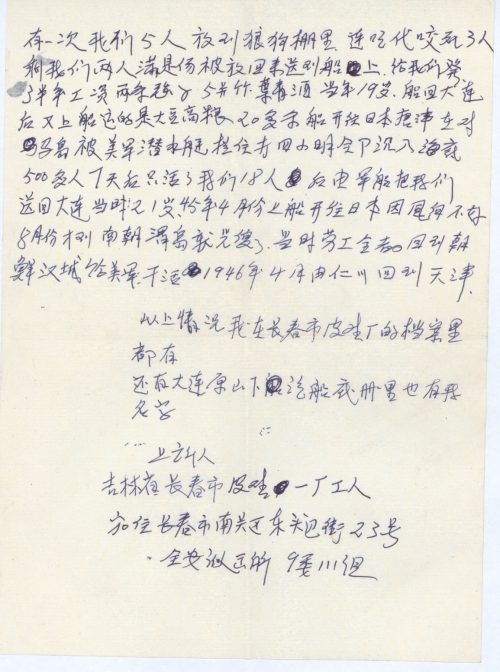 有一次我们5人 放到狼狗棚里 连吃代咬死了3人
剩我们两人满是伤被放回来送到船上. 给我们发
了半年工资 两条 5 竹叶青酒 当年19岁. 船回大连
后又上船运的是大豆高粮. 20多条船开往日本唐津在对
马岛被美军潜水艇 打 沉入海底
500多人7天后只活了我们18人 后由军船把我们
送回大连当时21岁. 45年4月份上船开往日本因风向不好
8月份才到南朝 岛就光复了. 当时劳工全者。回到朝
鲜汉城给美军干活 1946年4月由仁川回到天津.
以上情况我在长春市皮鞋厂的档案里
都有
还有大连原山下汽船底册里也有我
名字
上诉人
吉林省长春市皮鞋一厂工人
家住长春市南关区东头道街23号
全安派出所 9委川组